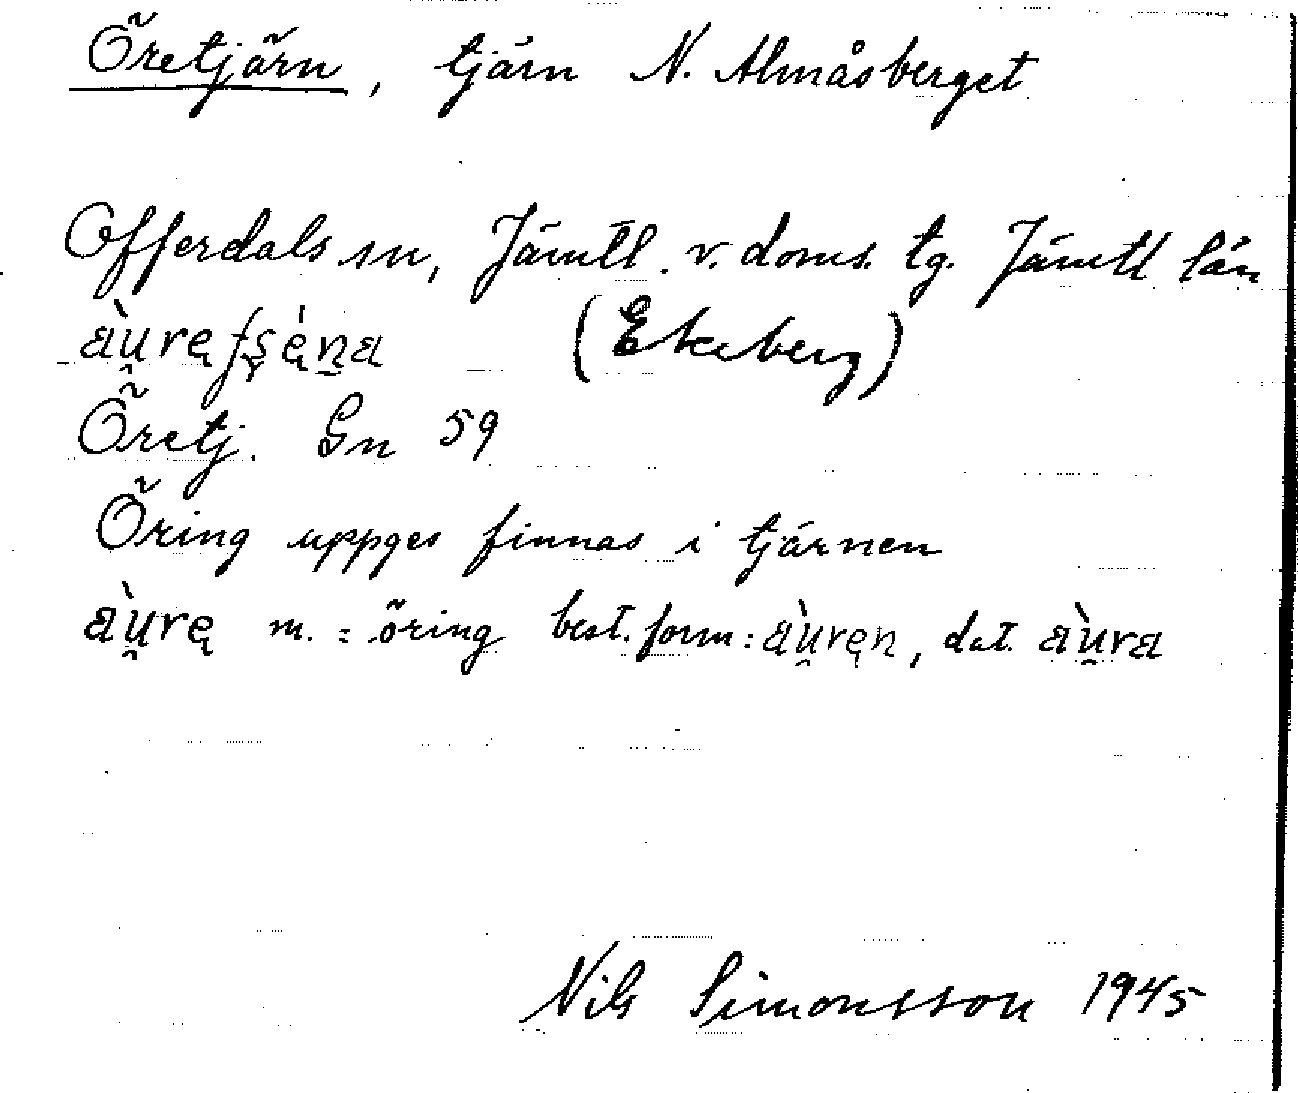 Öretjärn, tjärn N. Almåsberget
Offerdals sn, Jämtl. v. doms. tg. Jämtl län
(Ekeberg)
Öretj. Gn 59
Öring uppges finnas i tjärnen
àu̯rę m. = öring best. form: àu̯ręn, dat. àu̯ra
Nils Simonsson 1945